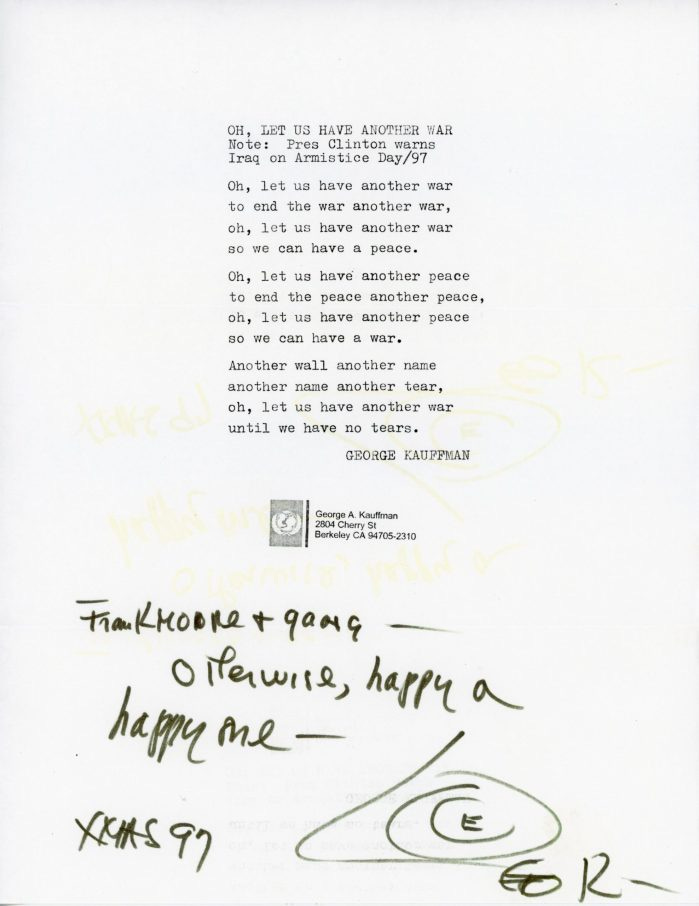 OH, LET US HAVE ANOTHER WAR
Note:  Pres Clinton warns
Iraq on Armistice Day/97
Oh, let us have another war
to end the war another war,
oh, let us have another war
so we can have a peace.
Oh, let us have another peace
to end the peace another peace,
oh, let us have another peace
so we can have a war.
Another wall another name
another name another tear,
oh, let us have another war
until we have no tears.
GEORGE KAUFFMAN
George A. Kauffman
2804 Cherry St
Berkeley CA 94705-2310
Frank MOORE + gang —
Otherwise, happy a
happy one —
XMAS 97
E